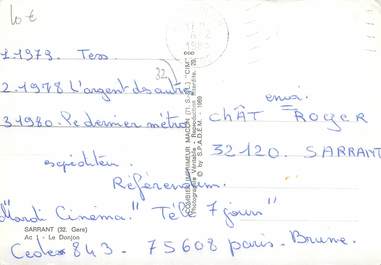 10 €
1.1979. Tess.
32
2.1978 L'argent des autres
3.1980. Le dernier métro
envoi
CHÂT ROGER
32120. SARRANT
expéditeur.
Référendum.
"Mardi Cinéma." Télé 7 jours"
Cedex 843 - 75608 paris. Brune.
SARRANT (32. Gers)
Ac 1 - Le Donjon
COMBIER IMPRIMEUR MACON (T.S.L.) "CIM"
Photographie Véritable - Reproduction interdite.
© by S.P.A.D.E.M. - 1969